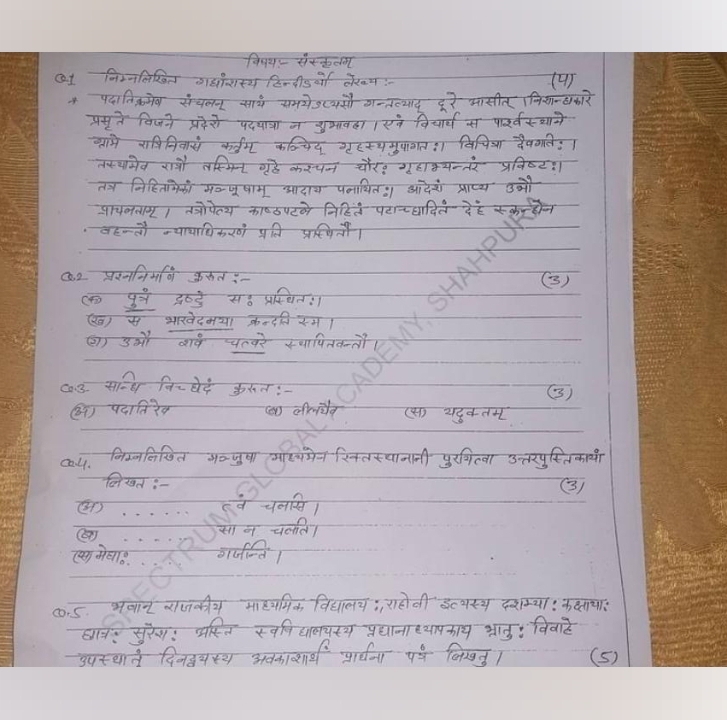 विषय:- संस्कृतम्
Q.1 निम्नलिखित गद्यांशस्य हिन्दीऽर्थो लेख्य:- (५)
* पदातिक्रमेण संचलन् सायं समयेऽप्यसौ गन्तव्याद् दूरे आसीत् । निशान्धकारे
प्रसृते विजने प्रदेशे पदयात्रा न शुभावहा । एवं विचार्य स पार्श्वस्थाने
ग्रामे रात्रिनिवासं कर्तुम् कञ्चिद् गृहस्थमुपागतः। विचित्रा दैवगतिः।
तस्यामेव रात्रौ तस्मिन् गृहे कश्चन चौरः गृहाभ्यन्तरं प्रविष्टः।
तत्र निहितामेकां मञ्जूषाम् आदाय पलायितः। आदेशं प्राप्य उभौ
प्राचलताम् । तत्रोपेत्य काष्ठपटले निहितं पटाच्छादितं देहं स्कन्धेन
वहन्तौ न्यायाधिकरणं प्रति प्रस्थितौ ।
Q.2 प्रश्ननिर्माणं कुरुत :- (3)
(क) पुत्रं द्रष्टुं सः प्रस्थितः।
(ख) स भारवेदनया क्रन्दति स्म ।
(ग) उभौ शवं चत्वरे स्थापितवन्तौ ।
Q.3. सन्धि विच्छेदं कुरुत :- (3)
(अ) पदातिरेव (ब) लीलयैव (स) यदुक्तम्
Q.4. निम्नलिखित मञ्जुषा माध्यमेन रिक्तस्थानानी पुरयित्वा उत्तरपुस्तिकायां
लिखत :- (3)
(अ) ...... त्वं चलसि ।
(ब) ...... सा न चलति।
(स) मेघाः.... गर्जन्ति ।
Q.5. भवान् राजकीय माध्यमिक विद्यालयः, राहोवी इत्यस्य दशम्याः कक्षायाः
छात्रः सुरेशः अस्ति स्वविद्यालयस्य प्रधानाध्यापकाय भ्रातुः विवाहे
उपस्थातुं दिनद्वयस्य अवकाशार्थं प्रार्थना पत्रं लिखतु । (5)
SPECTRUM GLOBAL ACADEMY, SHAHPURA